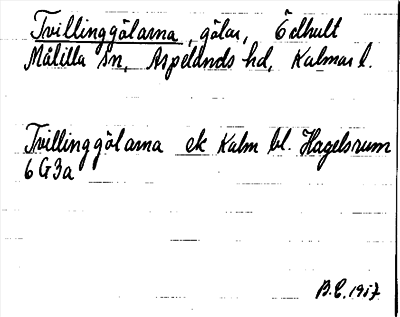 Tvillinggölarna, gölar, Ödhult
Målilla sn, Aspelands hd, Kalmar l.
Tvillinggölarna ek Kalm bl. Hagelsrum
6G3a
B.E. 1917